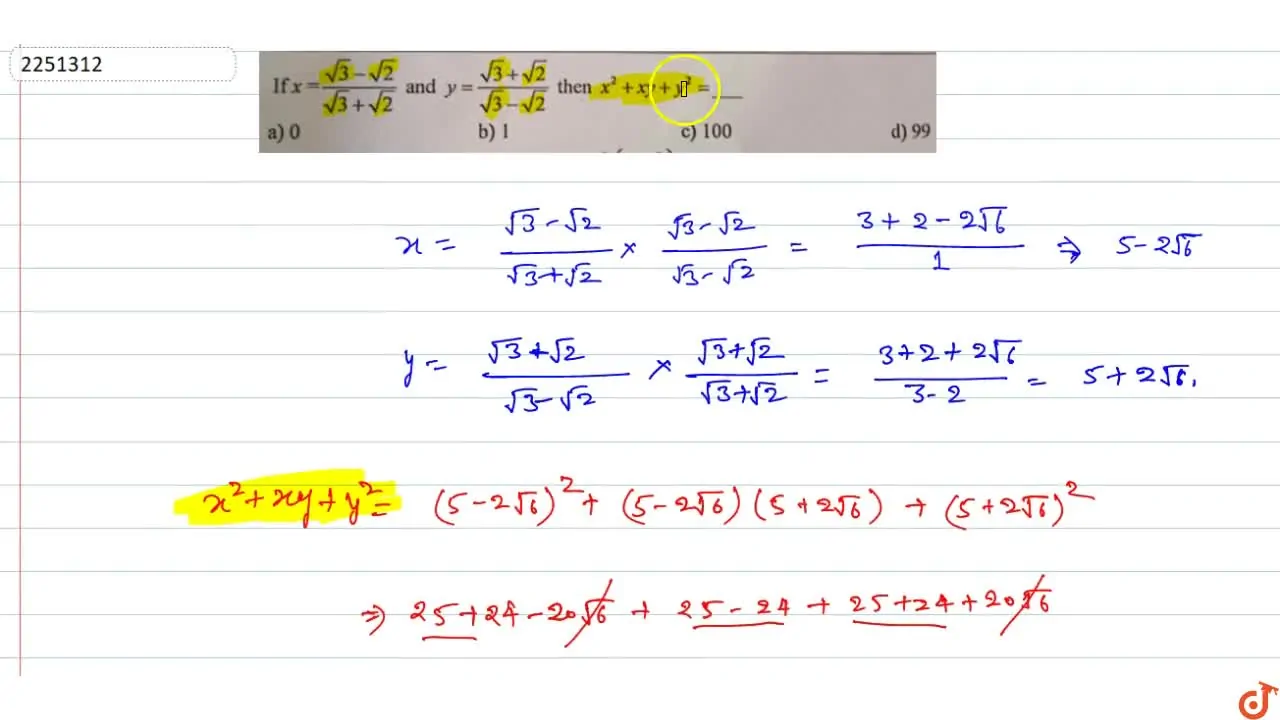 2251312
If x = (√3 − √2)/(√3 + √2) and y = (√3 + √2)/(√3 − √2) then x² + xy + y² = ___
a) 0 b) 1 c) 100 d) 99
x = (√3 − √2)/(√3 + √2) × (√3 − √2)/(√3 − √2) = (3 + 2 − 2√6)/1 ⇒ 5 − 2√6
y = (√3 + √2)/(√3 − √2) × (√3 + √2)/(√3 + √2) = (3 + 2 + 2√6)/(3 − 2) = 5 + 2√6.
x² + xy + y² = (5 − 2√6)² + (5 − 2√6)(5 + 2√6) + (5 + 2√6)²
⇒ 25 + 24 − 20√6 + 25 − 24 + 25 + 24 + 20√6